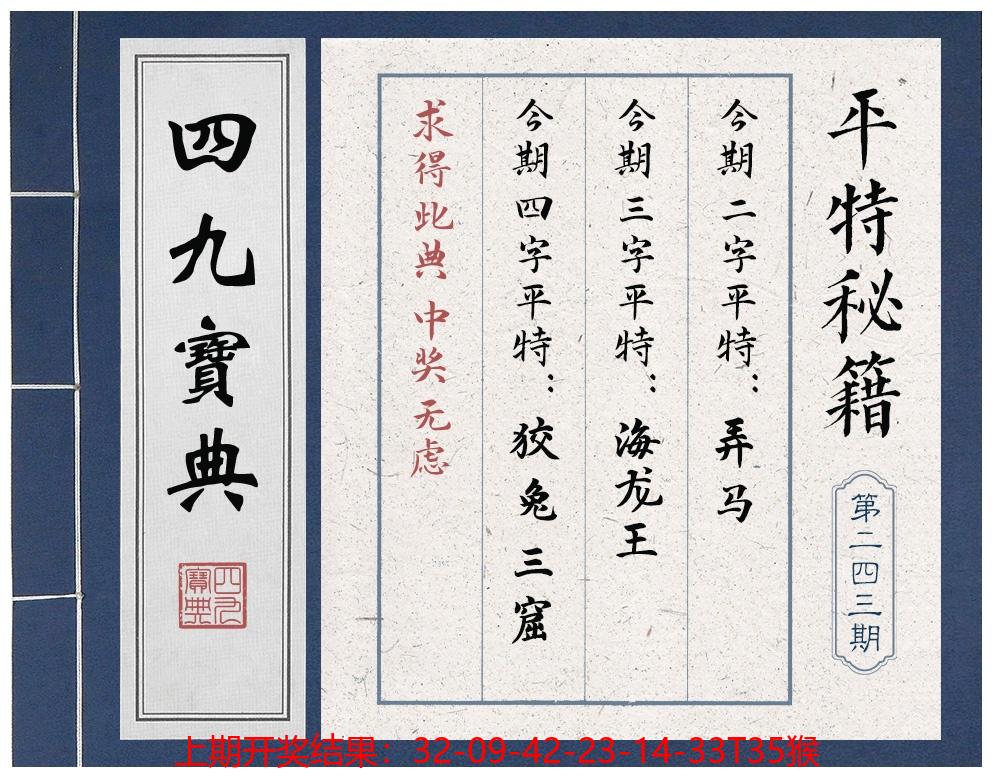 平特秘籍
第二四三期
今期二字平特：弄马
今期三字平特：海龙王
今期四字平特：狡兔三窟
求得此典 中奖无虑
四九寶典
四九寶典
上期开奖结果：32-09-42-23-14-33T35猴